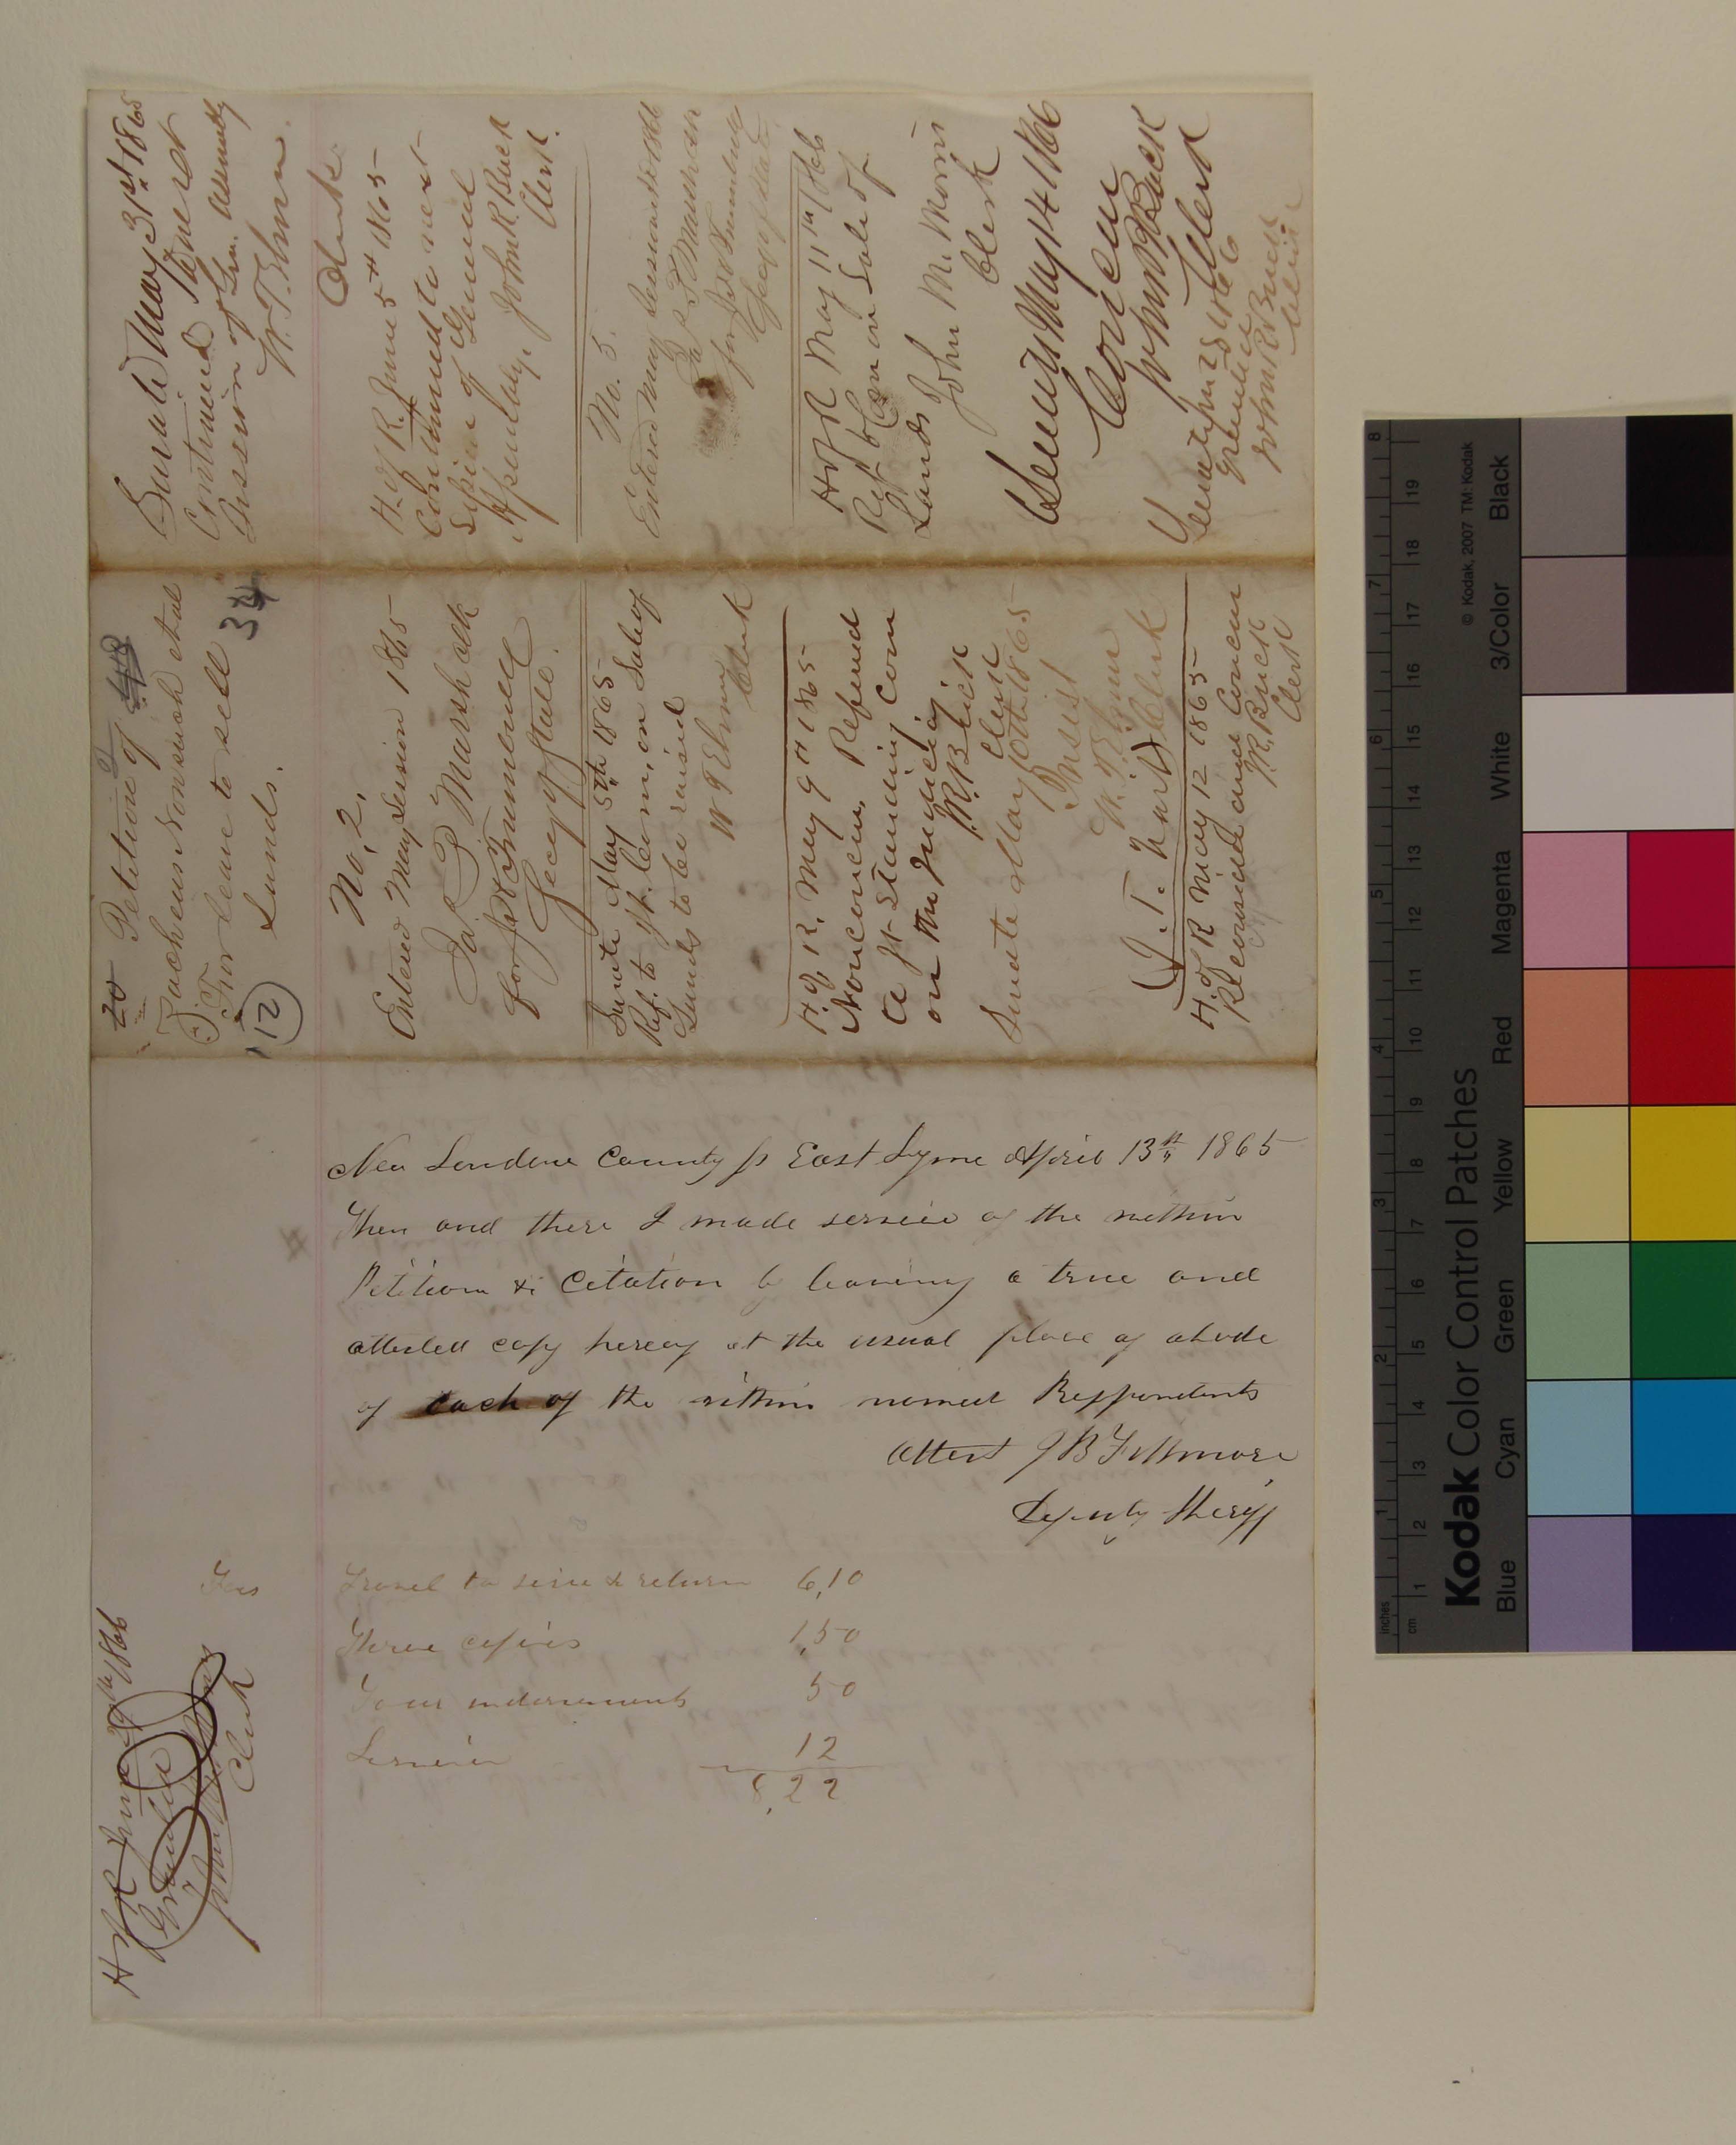 20 Petition of
Zacheus Nonsuch et al
For leave to sell
Lands.
34
12
No. 2.
Entered May Session 1865
Ja P Marsh clk
for J H Trumbull
Secy of State.
Senate May 5th 1865
Ref. to Jt. Com. on Sale of
Lands to be raised
W T Elmer
Clerk
H. of R. May 9th 1865
Nonconcur, Refered
to Jt Standing Com
on the Judiciary
J.R. Buck
Clerk
Senate May 10th 1865
Insist
W. T. Elmer
Clerk
H. of R May 12 1865
Reconsider and Concur
J.R. Buck
Clerk
Senate May 31st 1865
Continued to next
Session of Gen. Assembly
W. T. Elmer
Clerk
H. of R. June 5th 1865
Continued to next
Session of General
Assembly. John R. Buck
Clerk.
No. 5.
Entered May Session 1866
Ja P Marsh
for J H Trumbull
Secy of State
H of R May 11th 1866
Ref to Com on Sale of
Lands
John M. Morris
Clerk
Senate May 14 1866
Concur
John R Buck
Clerk
Senate June 28 1866
Granted
John R Buck
Clerk
New London County ss East Lyme April 13th 1865
Then and there I made service of the within
Petition & Citation by leaving a true and
attested copy hereof at the usual place of abode
of each of the within named Respondents
Attest J B Fillmore
Deputy Sheriff
Fees
Travel to serve & return 6,10
Three copies 1,50
Four endorsements 50
Service 12
8,22
H of R June 29th 1866
Granted
John M Morris
Clerk
Kodak Color Control Patches
© Kodak, 2007 TM: Kodak
Blue Cyan Green Yellow Red Magenta White 3/Color Black
inches 1 2 3 4 5 6 7 8
cm 1 2 3 4 5 6 7 8 9 10 11 12 13 14 15 16 17 18 19